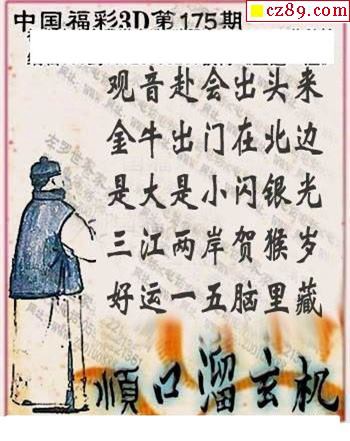 cz89.com
中国福彩3D第175期
观音赴会出头来
金牛出门在北边
是大是小闪银光
三江两岸贺猴岁
好运一五脑里藏
順口溜玄机